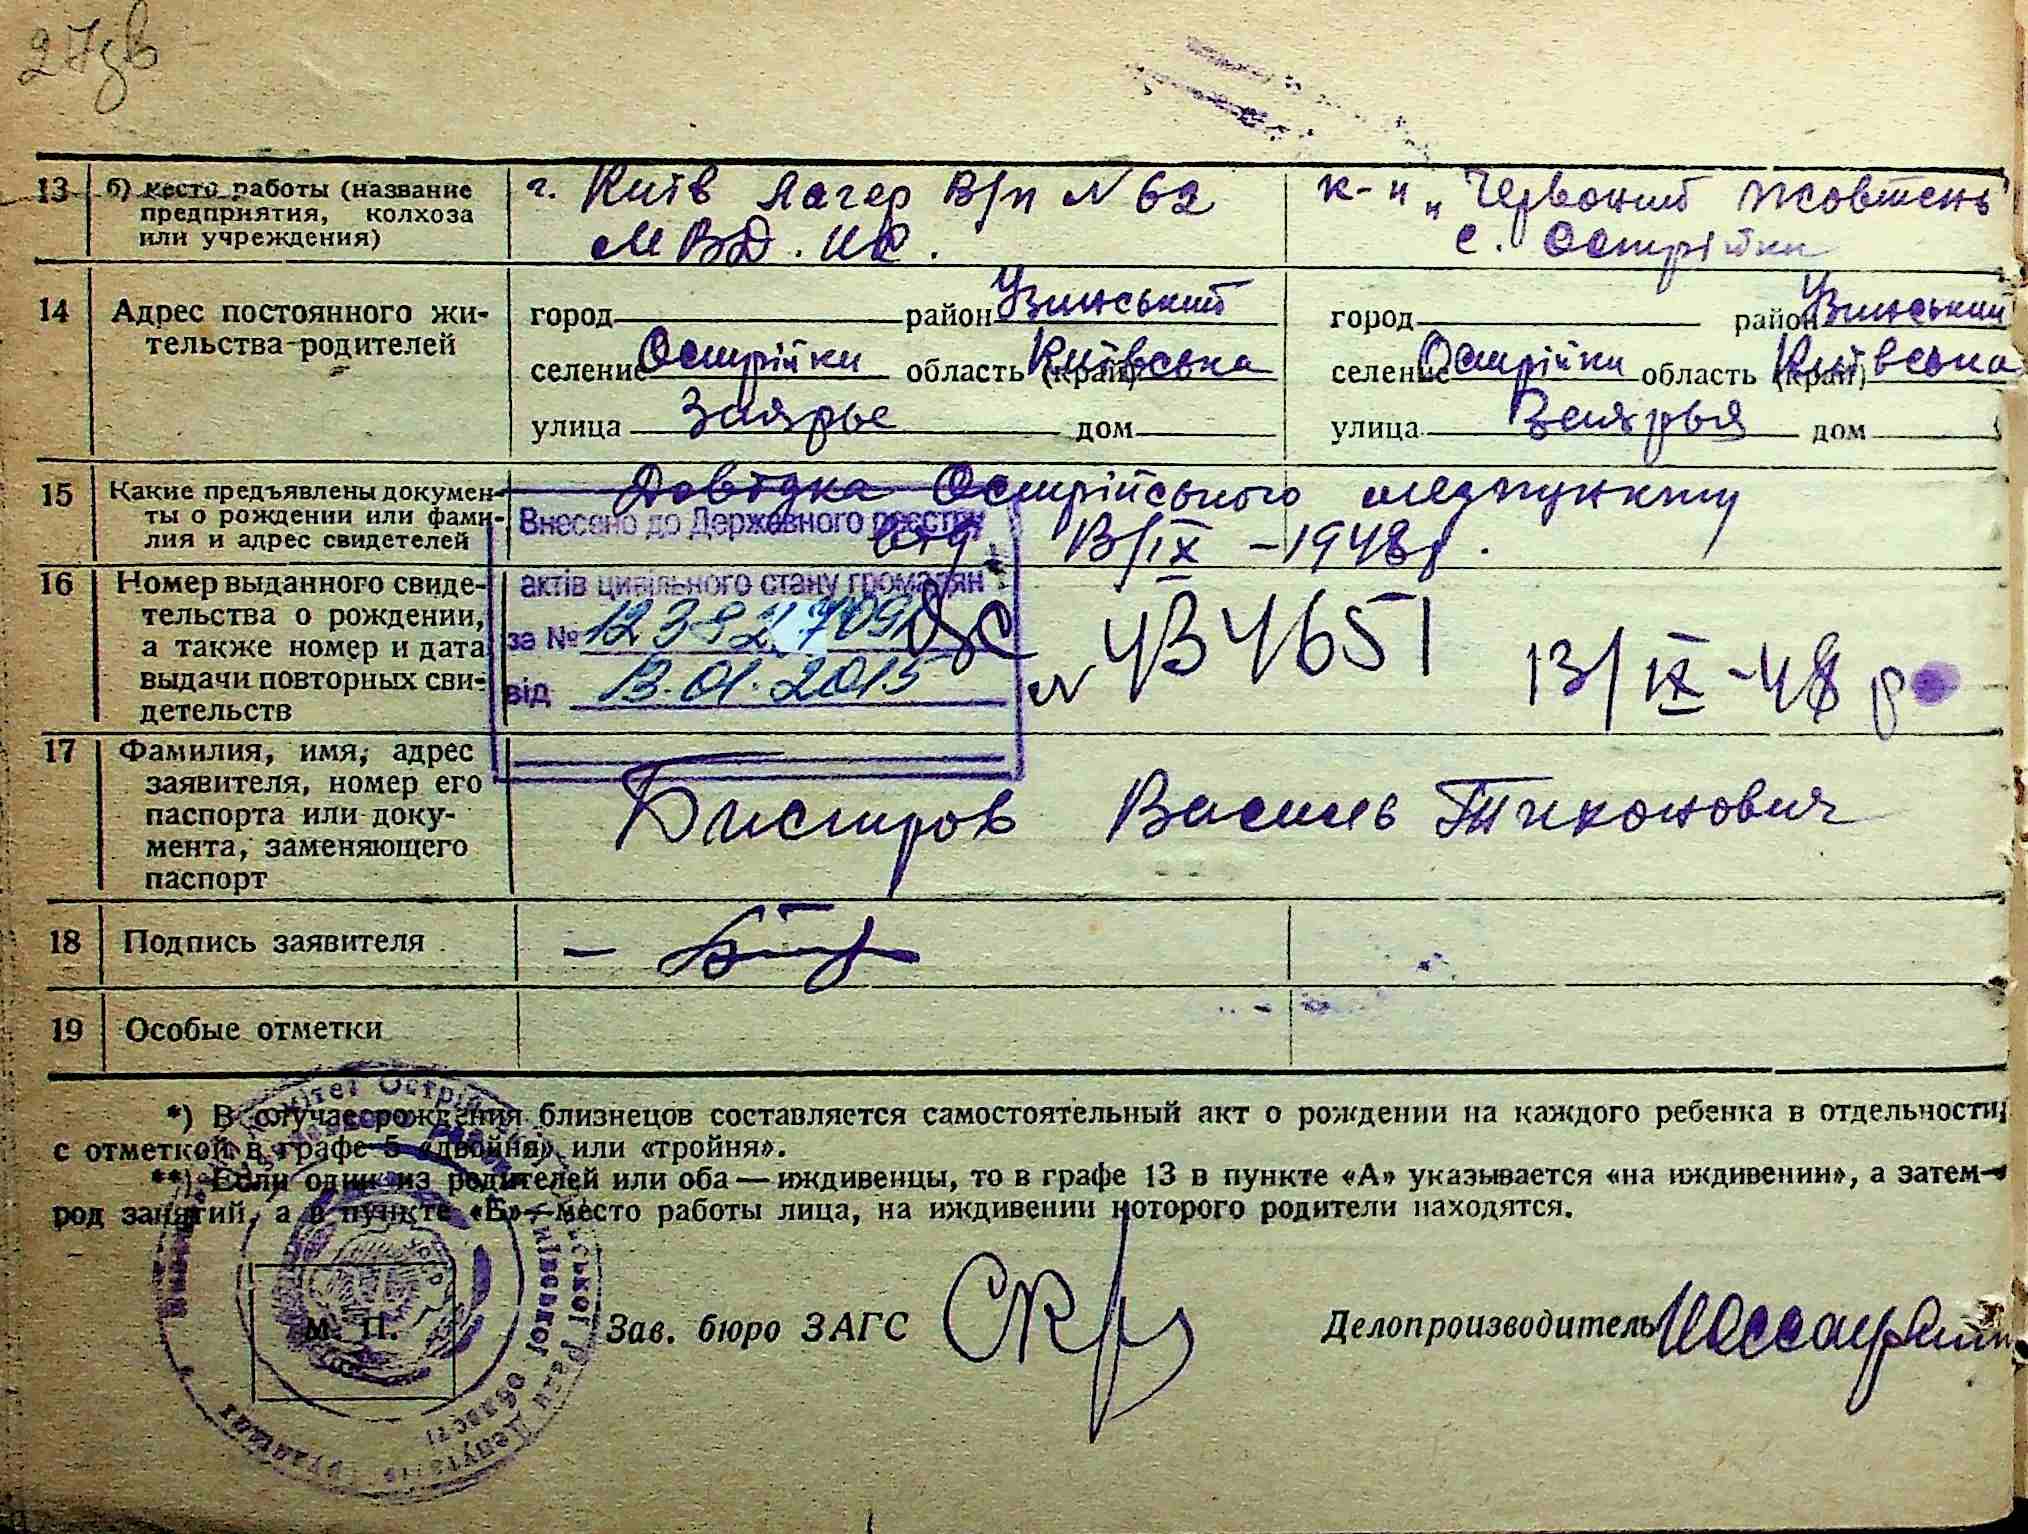 27зв
13 б) место работы (название г. Київ Лагер В/п N 62 к-п „Червоний Жовтень"
предприятия, колхоза МВД. с. Острійки
или учреждения)
14 Адрес постоянного жи- город район Узинський город район Узинський
тельства родителей селение Острійки область (край) Київська селение Острійки область (край) Київська
улица Заярье дом улица Заярья дом
15 Какие предъявлены докумен- Довідка Острійського медпункту
ты о рождении или фами- від 13/IX -1948р.
лия и адрес свидетелей
Внесено до Державного реєстру
актів цивільного стану громадян
за №
від 13.01.2015
16 Номер выданного свиде-
тельства о рождении, N 434651 13/IX -48 р
а также номер и дата
выдачи повторных сви-
детельств
17 Фамилия, имя, адрес
заявителя, номер его Бистров Василь Тихонович
паспорта или доку-
мента, заменяющего
паспорт
18 Подпись заявителя
19 Особые отметки
*) В случае рождения близнецов составляется самостоятельный акт о рождении на каждого ребенка в отдельности,
с отметкой в графе 5 «двойня» или «тройня».
**) Если один из родителей или оба — иждивенцы, то в графе 13 в пункте «А» указывается «на иждивении», а затем—
род занятий, а в пункте «Б»—место работы лица, на иждивении которого родители находятся.
М. П. Зав. бюро ЗАГС Делопроизводитель